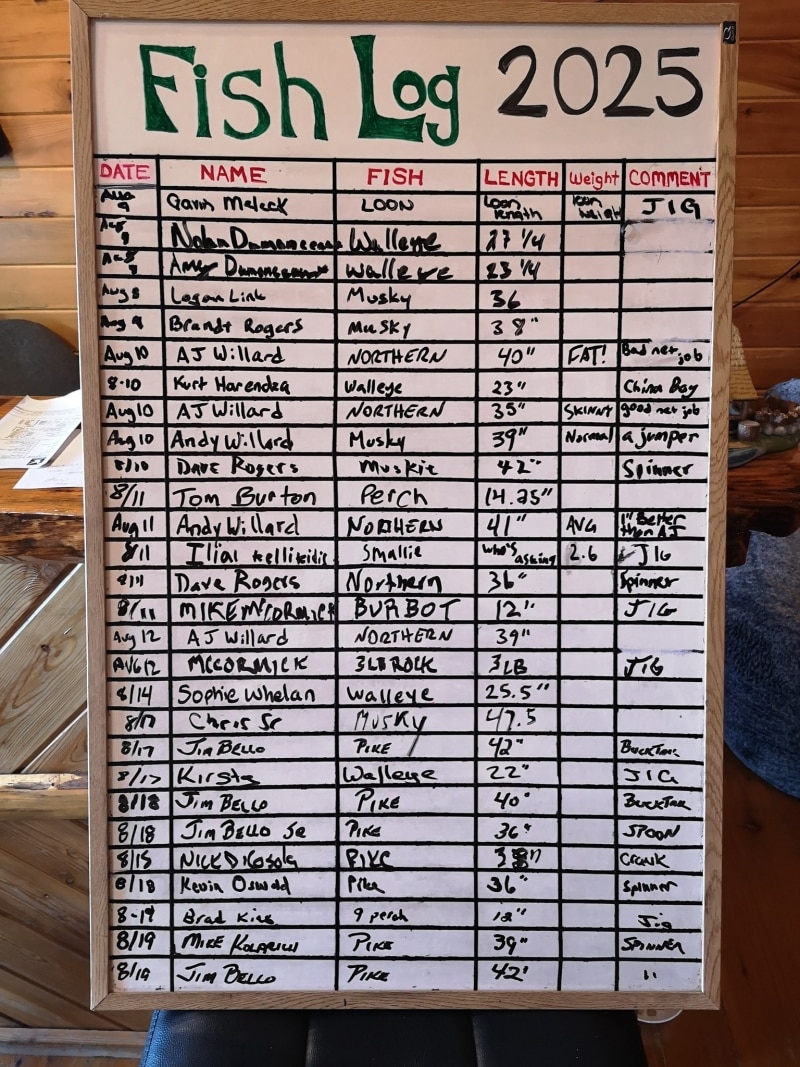 Fish Log 2025
DATE NAME FISH LENGTH Weight COMMENT
Aug 9 Gavin Meleck LOON Loon length loon weight JIG
Aug 9 Nolan Walleye 27 1/4
Aug 8 Amy Walleye 23 1/4
Aug 8 Logan Link Musky 36
Aug 9 Brandt Rogers Musky 38"
Aug 10 AJ Willard NORTHERN 40" FAT! Bad net job
8-10 Kurt Harendza Walleye 23" China Bay
Aug 10 AJ Willard NORTHERN 35" SKINNY good net job
Aug 10 Andy Willard Musky 39" Normal a jumper
8/10 DAVE Rogers Muskie 42" Spinner
8/11 Tom Burton Perch 14.25"
Aug 11 Andy Willard NORTHERN 41" AVG 1" Better than AJ
8/11 Smallie who's asking 2.6 JIG
8/11 Dave Rogers Northern 36" Spinner
8/11 MIKE McCORMICK BURBOT 12" JIG
Aug 12 AJ Willard NORTHERN 39"
AUG 12 MCCORMICK 3LB ROCK 3LB JIG
8/14 Sophie Whelan Walleye 25.5"
8/17 Chris Sr Musky 47.5
8/17 JIM BELLO PIKE 42" BUCKTAIL
8/17 Kirsta Walleye 22" JIG
8/18 JIM BELLO PIKE 40" BUCKTAIL
8/18 JIM BELLO JR PIKE 36" SPOON
8/15 NICK DICOSOLA PIKE Crank
8/18 Kevin Oswald Pike 36" Spinner
8-19 Brad King 9 perch 12" Jig
8/19 MIKE PIKE 39" SPINNER
8/19 JIM BELLO PIKE 42" "